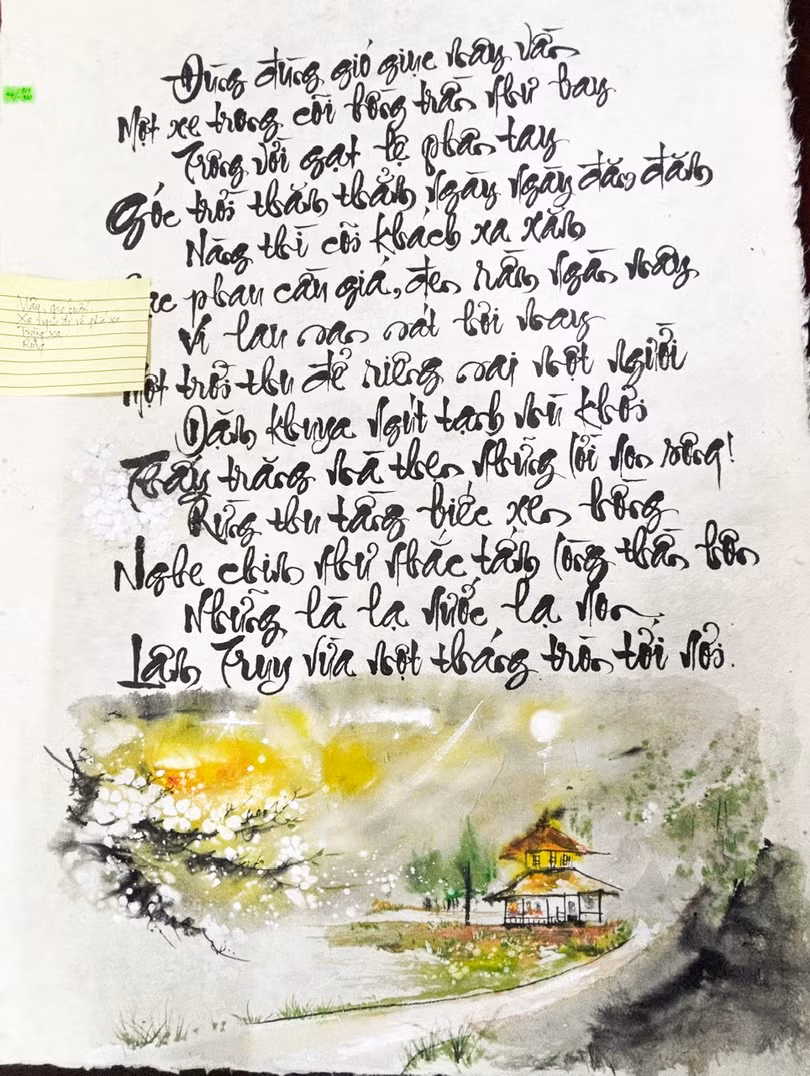 Đùng đùng gió giục mây vần
Một xe trong cõi hồng trần như bay
Trông vời gạt lệ phân tay
Góc trời thăm thẳm ngày ngày đăm đăm
Nàng thì cõi khách xa xăm
phau cầu giá, đen rầm ngàn mây
Vi lau san sát hơi may
Một trời thu để riêng ai một người
Dặm khuya ngút tạnh mù khơi
Thấy trăng mà thẹn những lời non sông!
Rừng thu tầng biếc xen hồng
Nghe chim như nhắc tấm lòng thần hôn
Những là lạ nước lạ non
Lâm Truy vừa một tháng tròn tới nơi.